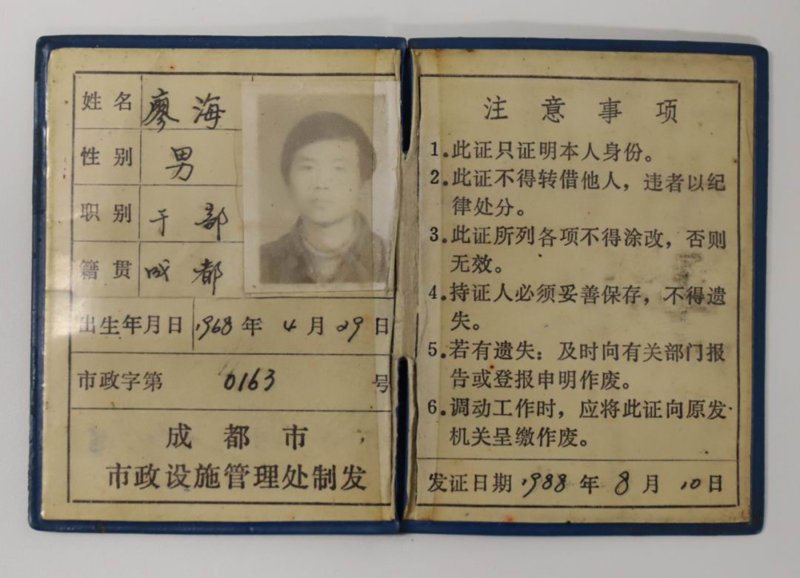 姓名 廖海
性别 男
职别 干部
籍贯 成都
出生年月日 1968年4月29日
市政字第 0163 号
成都市
市政设施管理处制发
注意事项
1.此证只证明本人身份。
2.此证不得转借他人，违者以纪
律处分。
3.此证所列各项不得涂改，否则
无效。
4.持证人必须妥善保存，不得遗
失。
5.若有遗失：及时向有关部门报
告或登报申明作废。
6.调动工作时，应将此证向原发
机关呈缴作废。
发证日期 1988年8月10日